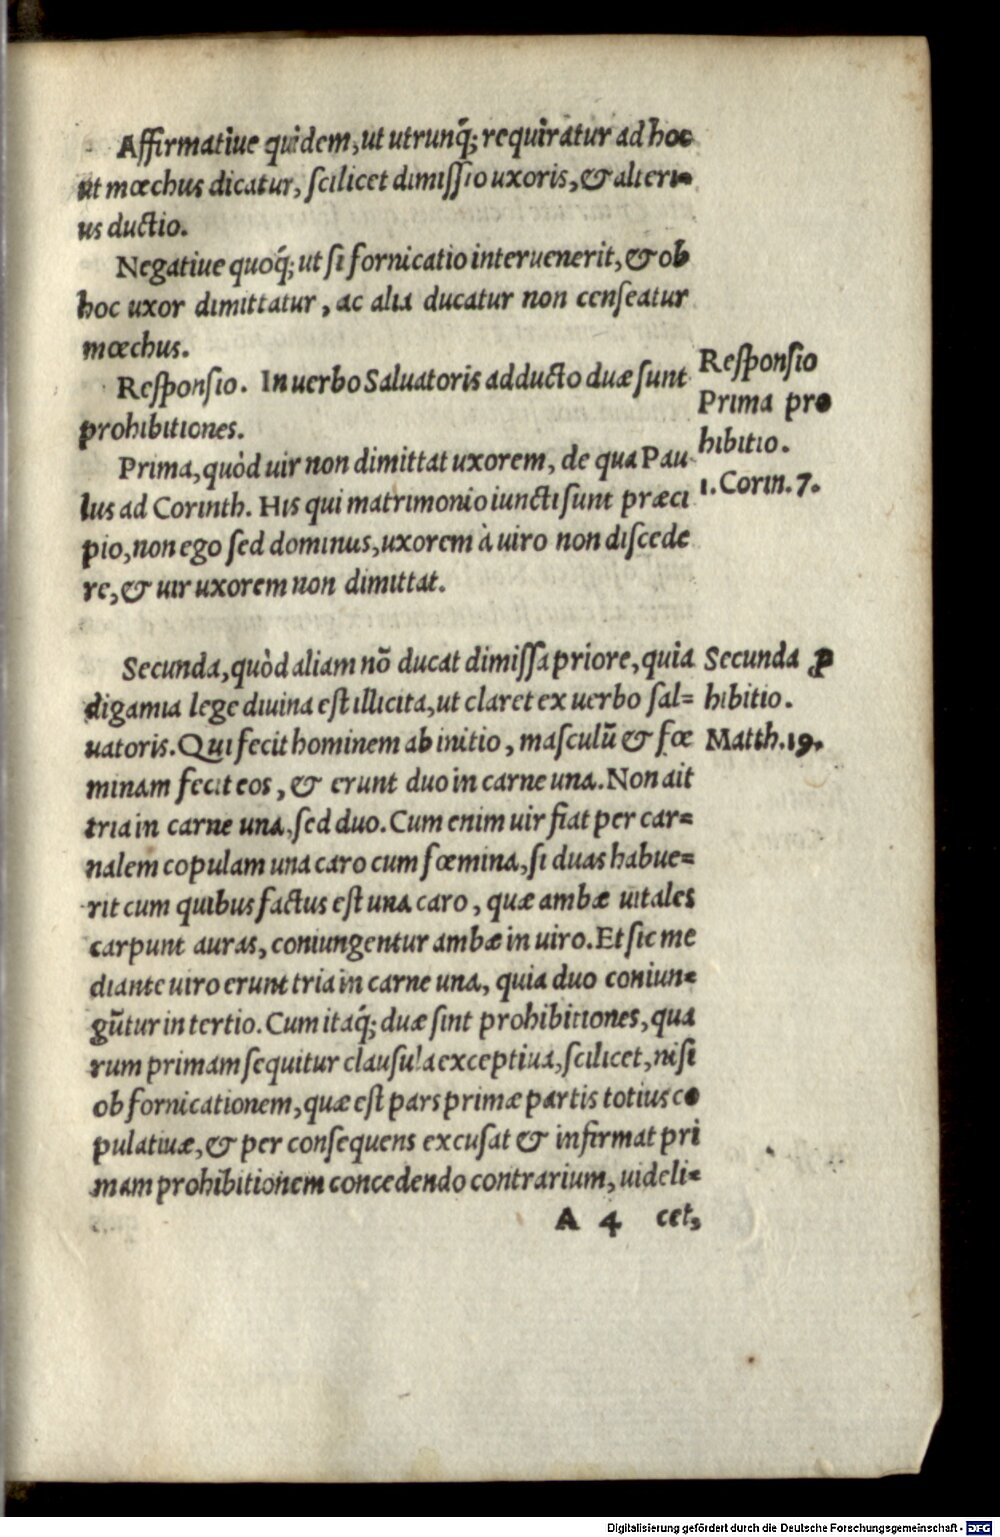 Affirmatiue quidem, ut utrunq́; requiratur ad hoc
ut mœchus dicatur, ſcilicet dimiſſio uxoris, & alteri-
us ductio.
Negatiue quoq́; ut ſi fornicatio interuenerit, & ob
hoc uxor dimittatur, ac alia ducatur non cenſeatur
mœchus.
Reſponſio. In uerbo Saluatoris adducto duæ ſunt
prohibitiones.
Reſponſio
Prima pro
hibitio.
1. Corin. 7.
Prima, quòd uir non dimittat uxorem, de qua Pau
lus ad Corinth. His qui matrimonio iuncti ſunt præci
pio, non ego ſed dominus, uxorem à uiro non diſcede
re, & uir uxorem non dimittat.
Secunda, quòd aliam nō ducat dimiſſa priore, quia
digamia lege diuina eſt illicita, ut claret ex uerbo ſal=
uatoris. Qui fecit hominem ab initio, maſculũ & fœ
minam fecit eos, & erunt duo in carne una. Non ait
tria in carne una, ſed duo. Cum enim uir fiat per car=
nalem copulam una caro cum fœmina, ſi duas habue=
rit cum quibus factus eſt una caro, quæ ambæ uitales
carpunt auras, coniungentur ambæ in uiro. Et ſic me
diante uiro erunt tria in carne una, quia duo coniun=
gũtur in tertio. Cum itaq́; duæ ſint prohibitiones, qua
rum primam ſequitur clauſula exceptiua, ſcilicet, niſi
ob fornicationem, quæ eſt pars primæ partis totius co
pulatiuæ, & per conſequens excuſat & infirmat pri
mam prohibitionem concedendo contrarium, uideli-
Secunda ꝓ
hibitio.
Matth. 19.
A 4 cet,
Digitalisierung gefördert durch die Deutsche Forschungsgemeinschaft - DFG